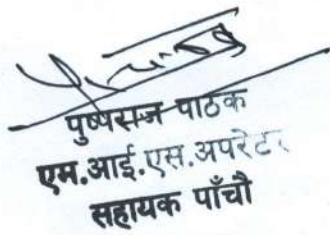 पुष्पराज पाठक
एम.आई.एस.अपरेटर
सहायक पाँचौ